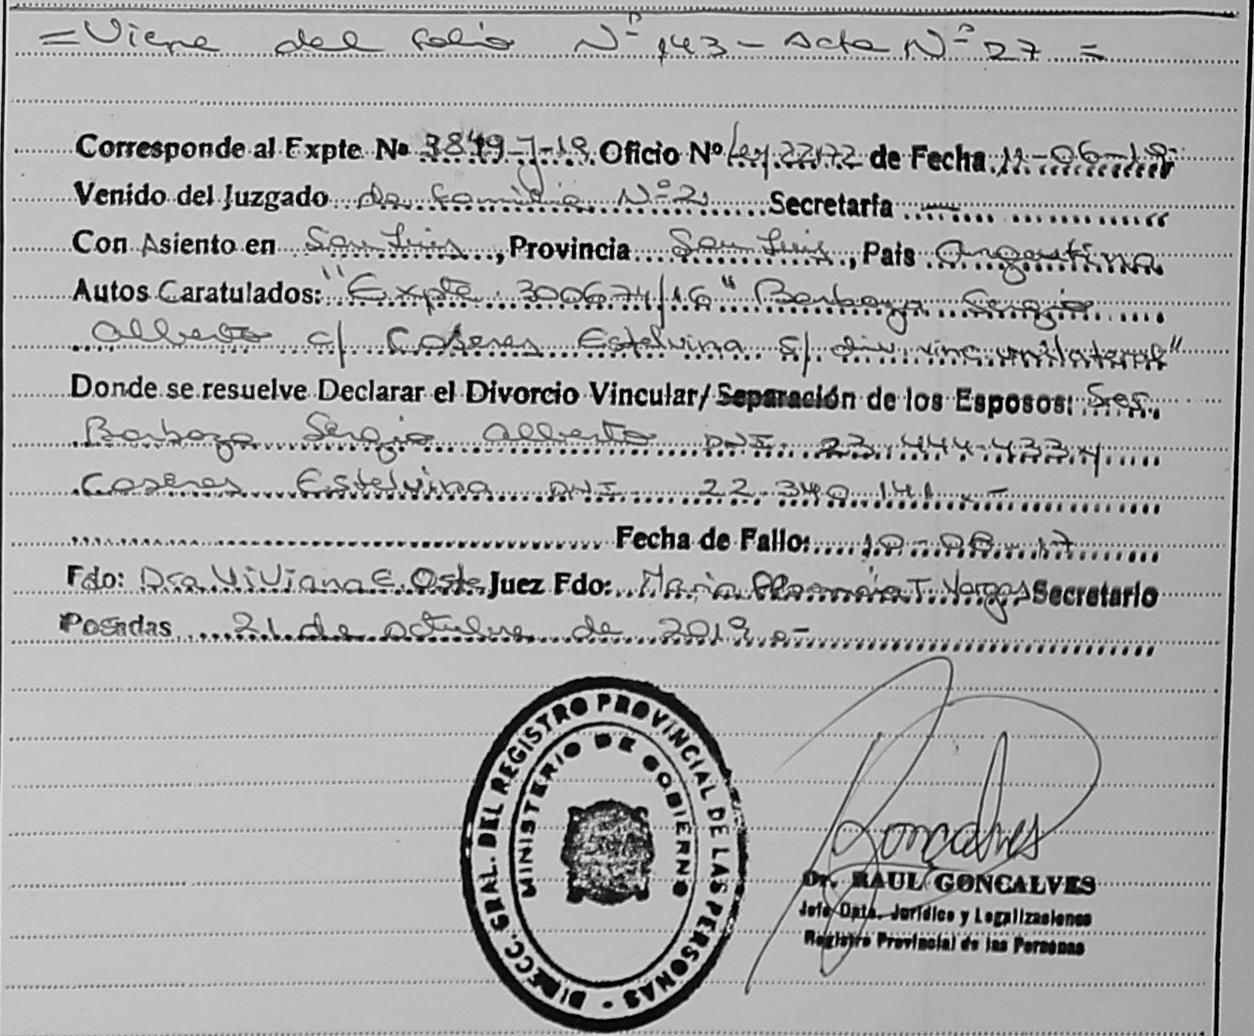 = Viene del folio Nº 143 - Acta Nº 27 =
Corresponde al Expte. Nº 3849-J-19 Oficio Nº Ley 22172 de Fecha 11-06-19
Venido del Juzgado de familia Nº 2 Secretaría —
Con Asiento en San Luis, Provincia San Luis, Pais Argentina
Autos Caratulados: "Expte. 300674/16" Barboza Sergio
Alberto c/ Caseres Estelvina s/ div. vinc. unilateral"
Donde se resuelve Declarar el Divorcio Vincular/ Separación de los Esposos: Sres.
Barboza Sergio Alberto DNI. 23.444.433 y
Caseres Estelvina DNI. 22.340.141.-
Fecha de Fallo: 10-08-17
Fdo: Dra. Viviana E. Oste Juez Fdo: Maria T. Vargas Secretario
Posadas 21 de octubre de 2019.-
DIRECC. GRAL. DEL REGISTRO PROVINCIAL DE LAS PERSONAS -
MINISTERIO DE GOBIERNO
Goncalves
Dr. RAUL GONCALVES
Jefe Dpto. Jurídico y Legalizaciones
Registro Provincial de las Personas